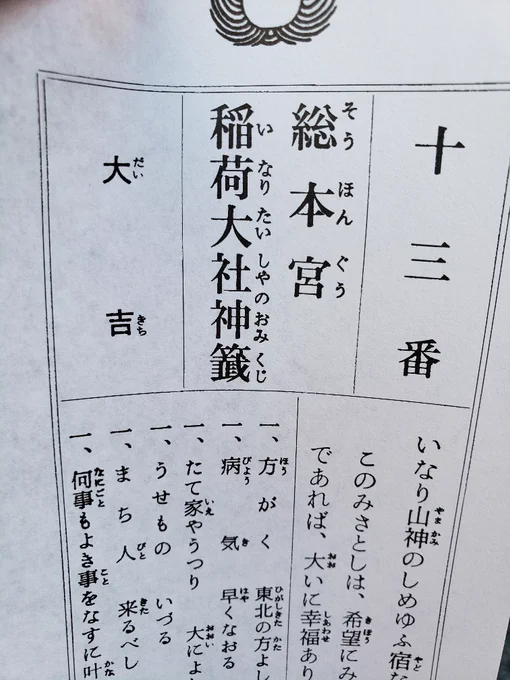 十三番
総本宮
稲荷大社神籤
大吉
いなり山神のしめゆふ宿な
このみさとしは、希望にみ
であれば、大いに幸福あり
一、方がく 東北の方よし
一、病気 早くなおる
一、たて家やうつり 大によ
一、うせもの いづる
一、まち人 来るべし
一、何事もよき事をなすに叶